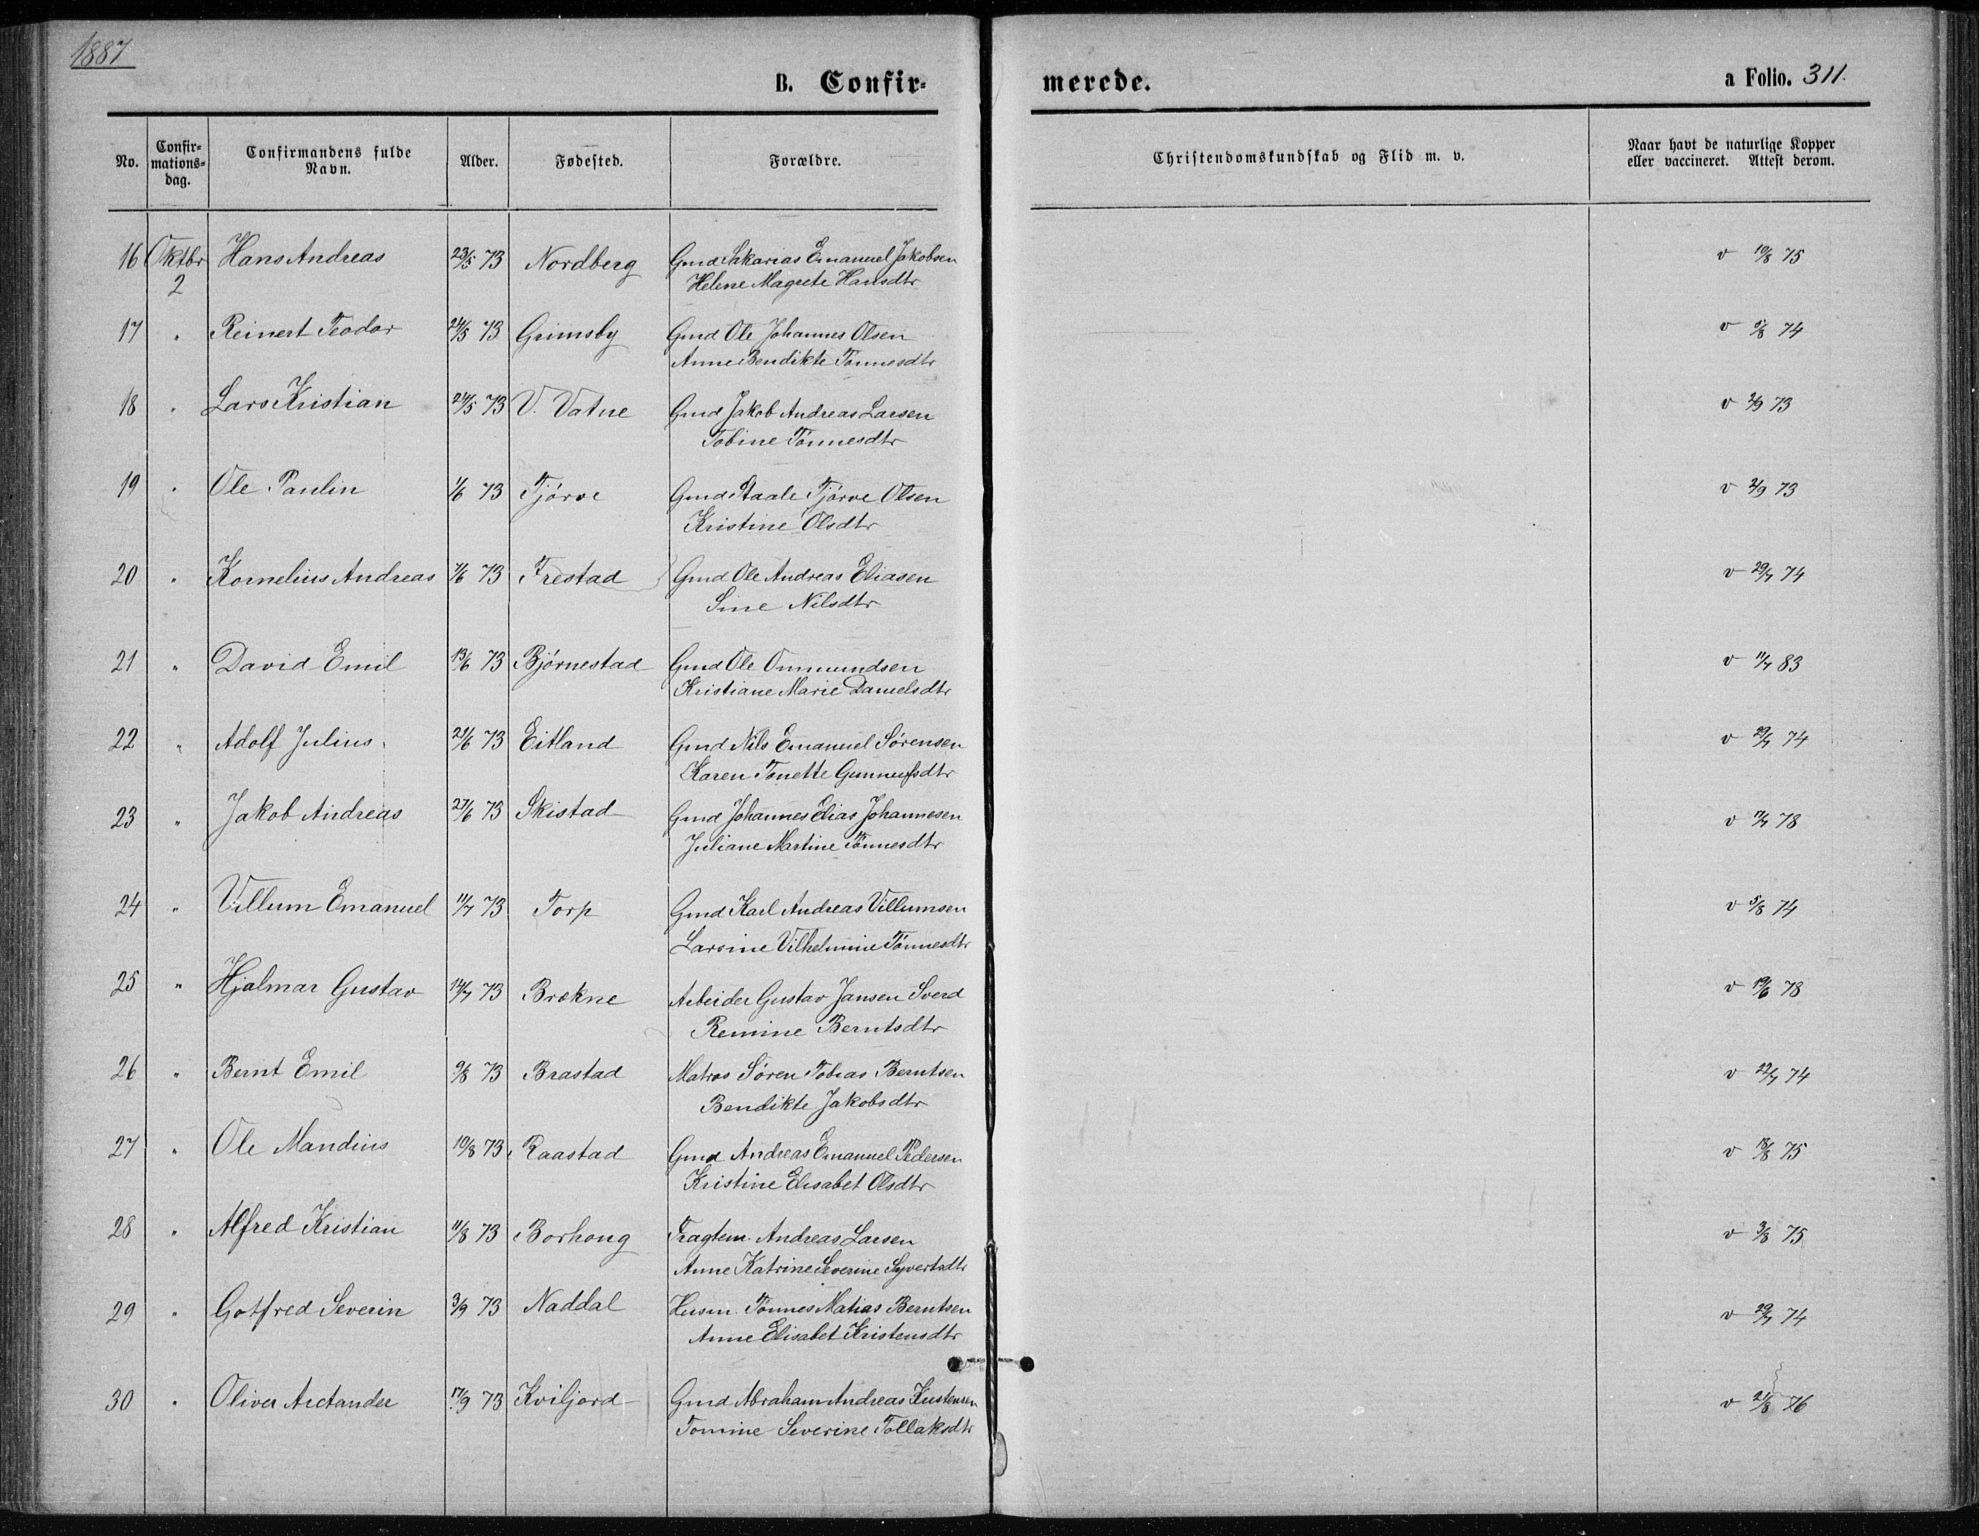 1887
B. Confir-
merede.
a Folio. 311.
No.
Confir-
mations-
dag.
Confirmandens fulde
Navn.
Alder.
Fødested.
Forældre.
Christendomskundskab og Flid m. v.
Naar havt de naturlige Kopper
eller vaccineret. Attest derom.
16 Oktbr Hans Andreas 23/5 73 Nordberg Gmd Sakarias Emanuel Jakobsen v 10/8 75
2 Helene Magrete Hansdtr
17 " Reinert Teodor 24/5 73 Grimsby Gmd Ole Johannes Olsen v 5/8 74
Anne Bendikte Tønnesdtr
18 " Lars Kristian 24/5 73 V. Vatne Gmd Jakob Andreas Larsen v 2/9 73
Tobine Tønnesdtr
19 " Ole Paulin 1/6 73 Tjørve Gmd Staale Tjørve Olsen v 2/9 73
Kristine Olsdtr
20 " Kornelius Andreas 7/6 73 Frestad Gmd Ole Andreas Eliasen v 29/7 74
Sine Nilsdtr
21 " David Emil 13/6 73 Bjørnestad Gmd Ole Ommundsen v 11/7 83
Kristiane Marie Danielsdtr
22 " Adolf Julius 73 Eitland Gmd Nils Emanuel Sørensen v 29/7 74
Karen Tonette Gunnufsdtr
23 " Jakob Andreas 27/6 73 Skistad Gmd Johannes Elias Johannesen v 78
Juliane Martine Tønnesdtr
24 " Villum Emanuel 11/7 73 Torp Gmd Karl Andreas Villumsen v 5/8 74
Larsine Vilhelmine Tønnesdtr
25 " Hjalmar Gustav 14/7 73 Brekne Arbeider Gustav Jansen Sverd v 19/6 78
Remine Berntsdtr
26 " Bernt Emil 73 Brastad Matros Søren Tobias Berntsen v 22/7 74
Bendikte Jakobsdtr
27 " Ole Mandius 10/8 73 Raastad Gmd Andreas Emanuel Pedersen v 75
Kristine Elisabet Olsdtr
28 " Alfred Kristian 11/8 73 Borhong Fragtem. Andreas Larsen v 3/8 75
Anne Katrine Severine Syvertsdtr
29 " Gotfred Severin 3/9 73 Naddal Husm. Tønnes Matias Berntsen v 29/7 74
Anne Elisabet Kristensdtr
30 " Oliver Arctander 17/9 73 Kviljord Gmd Abraham Andreas Kristensen v 21/8 76
Tomine Severine Tollaksdtr